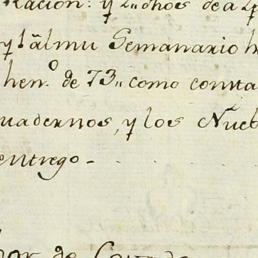 racion. y 2. dhos de a 4
y 1 almu Semanario h
hen.º de 73,, como consta
uadernos, y los Nueb
entrego -
por de